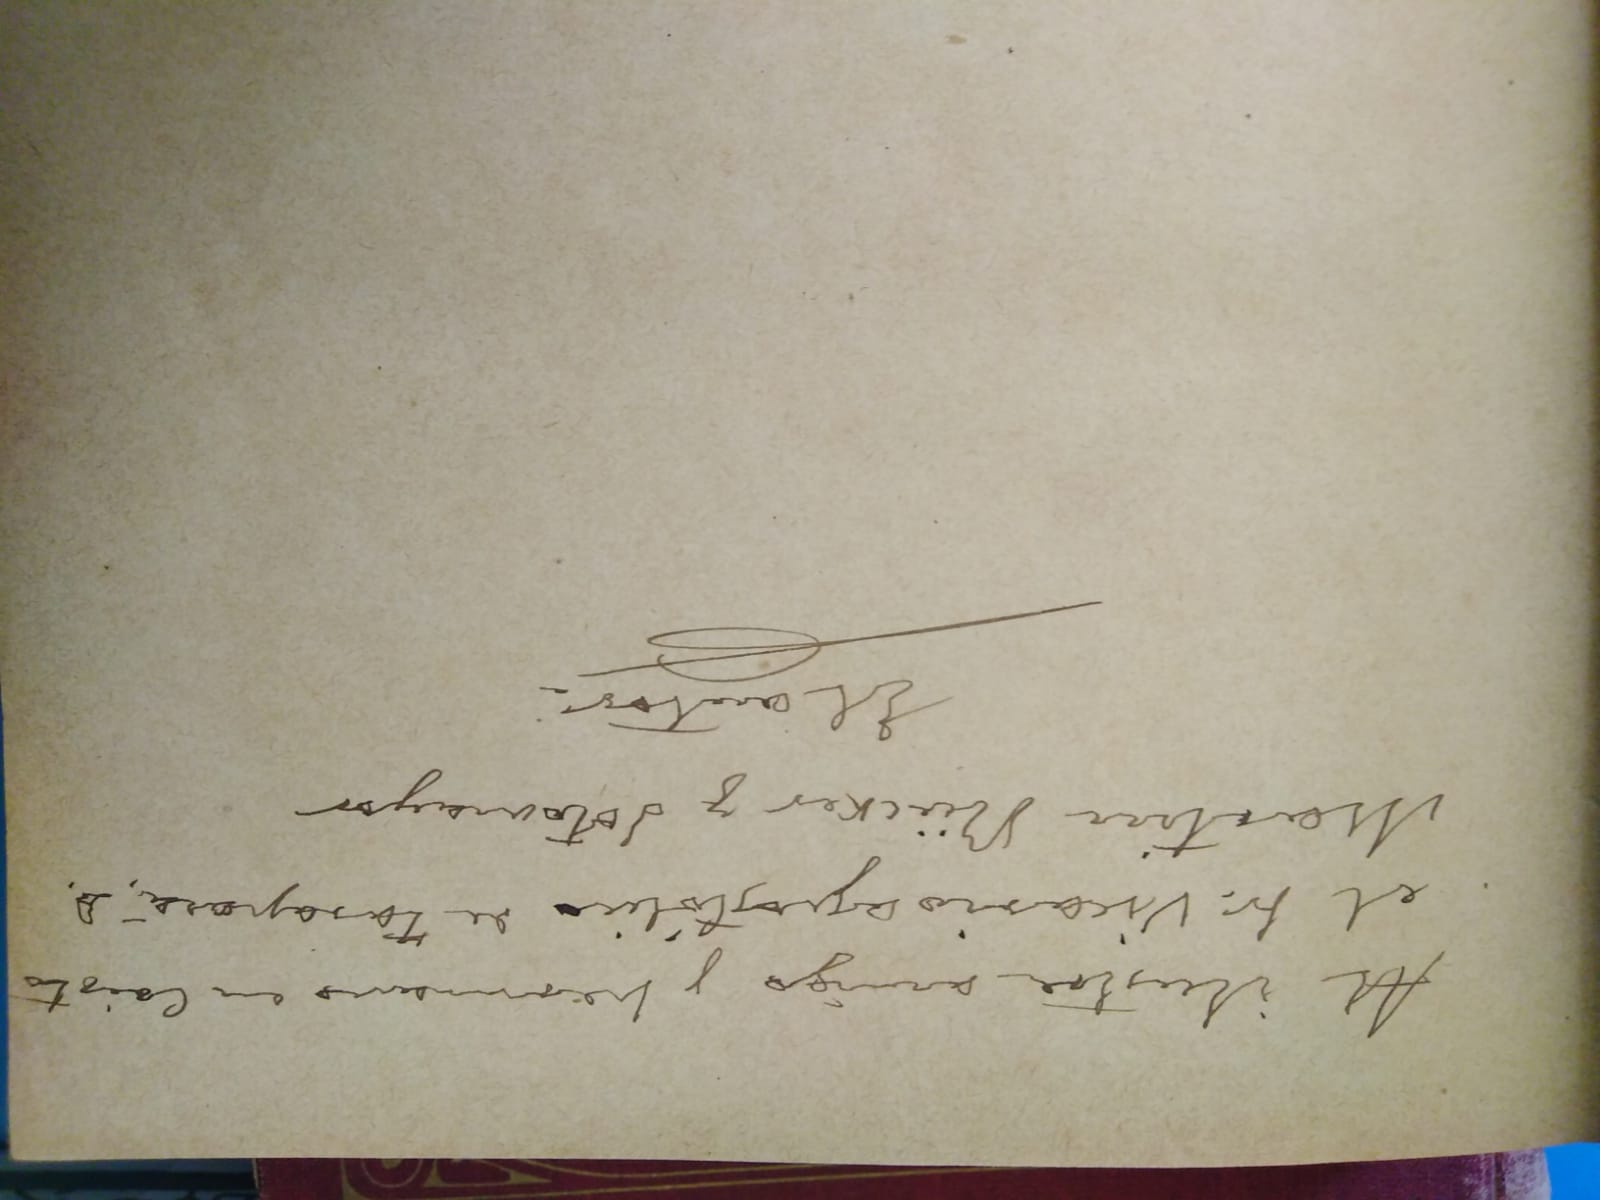 Al ilustre amigo y hermano en Cristo
el Sr. Vicario apostólico de Tarapacá, D.
Martín Rücker y Sotomayor
El autor.-